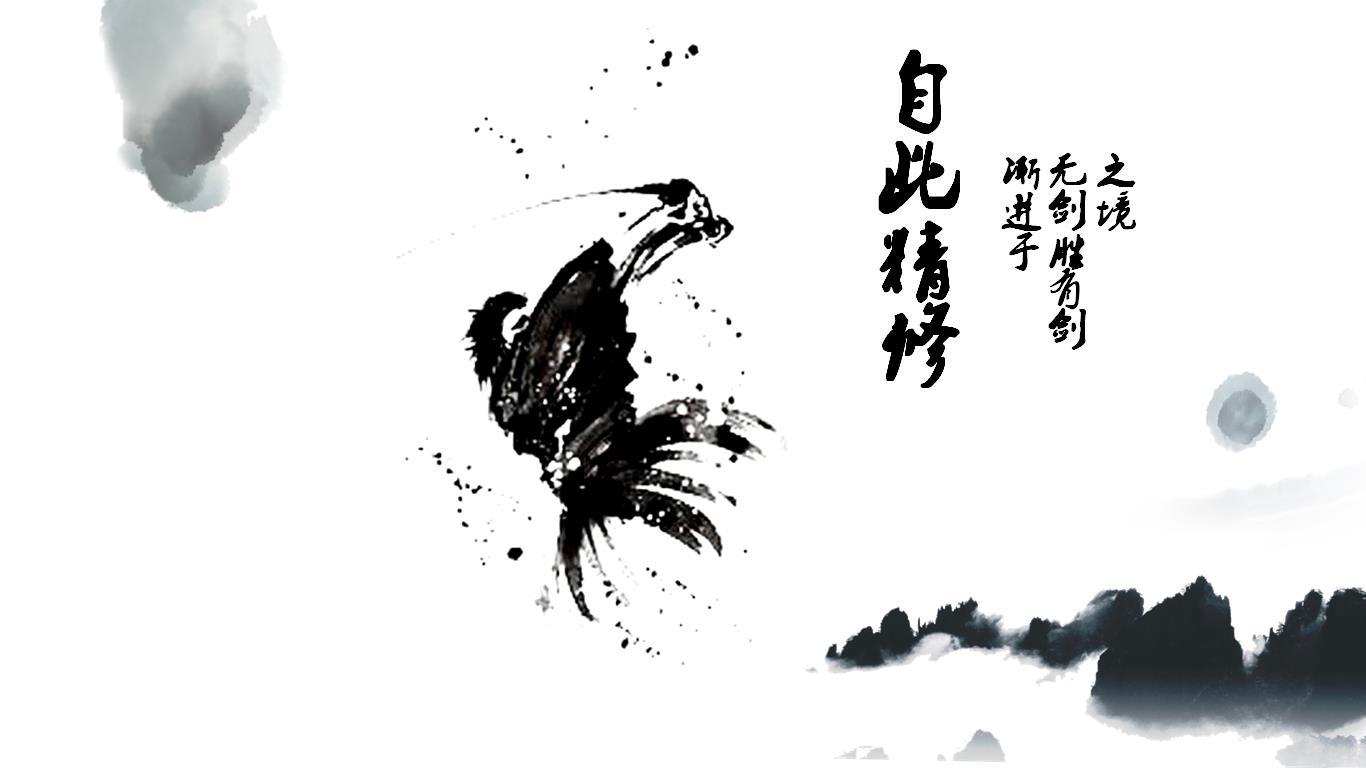 自此精修
渐进于
无剑胜有剑
之境